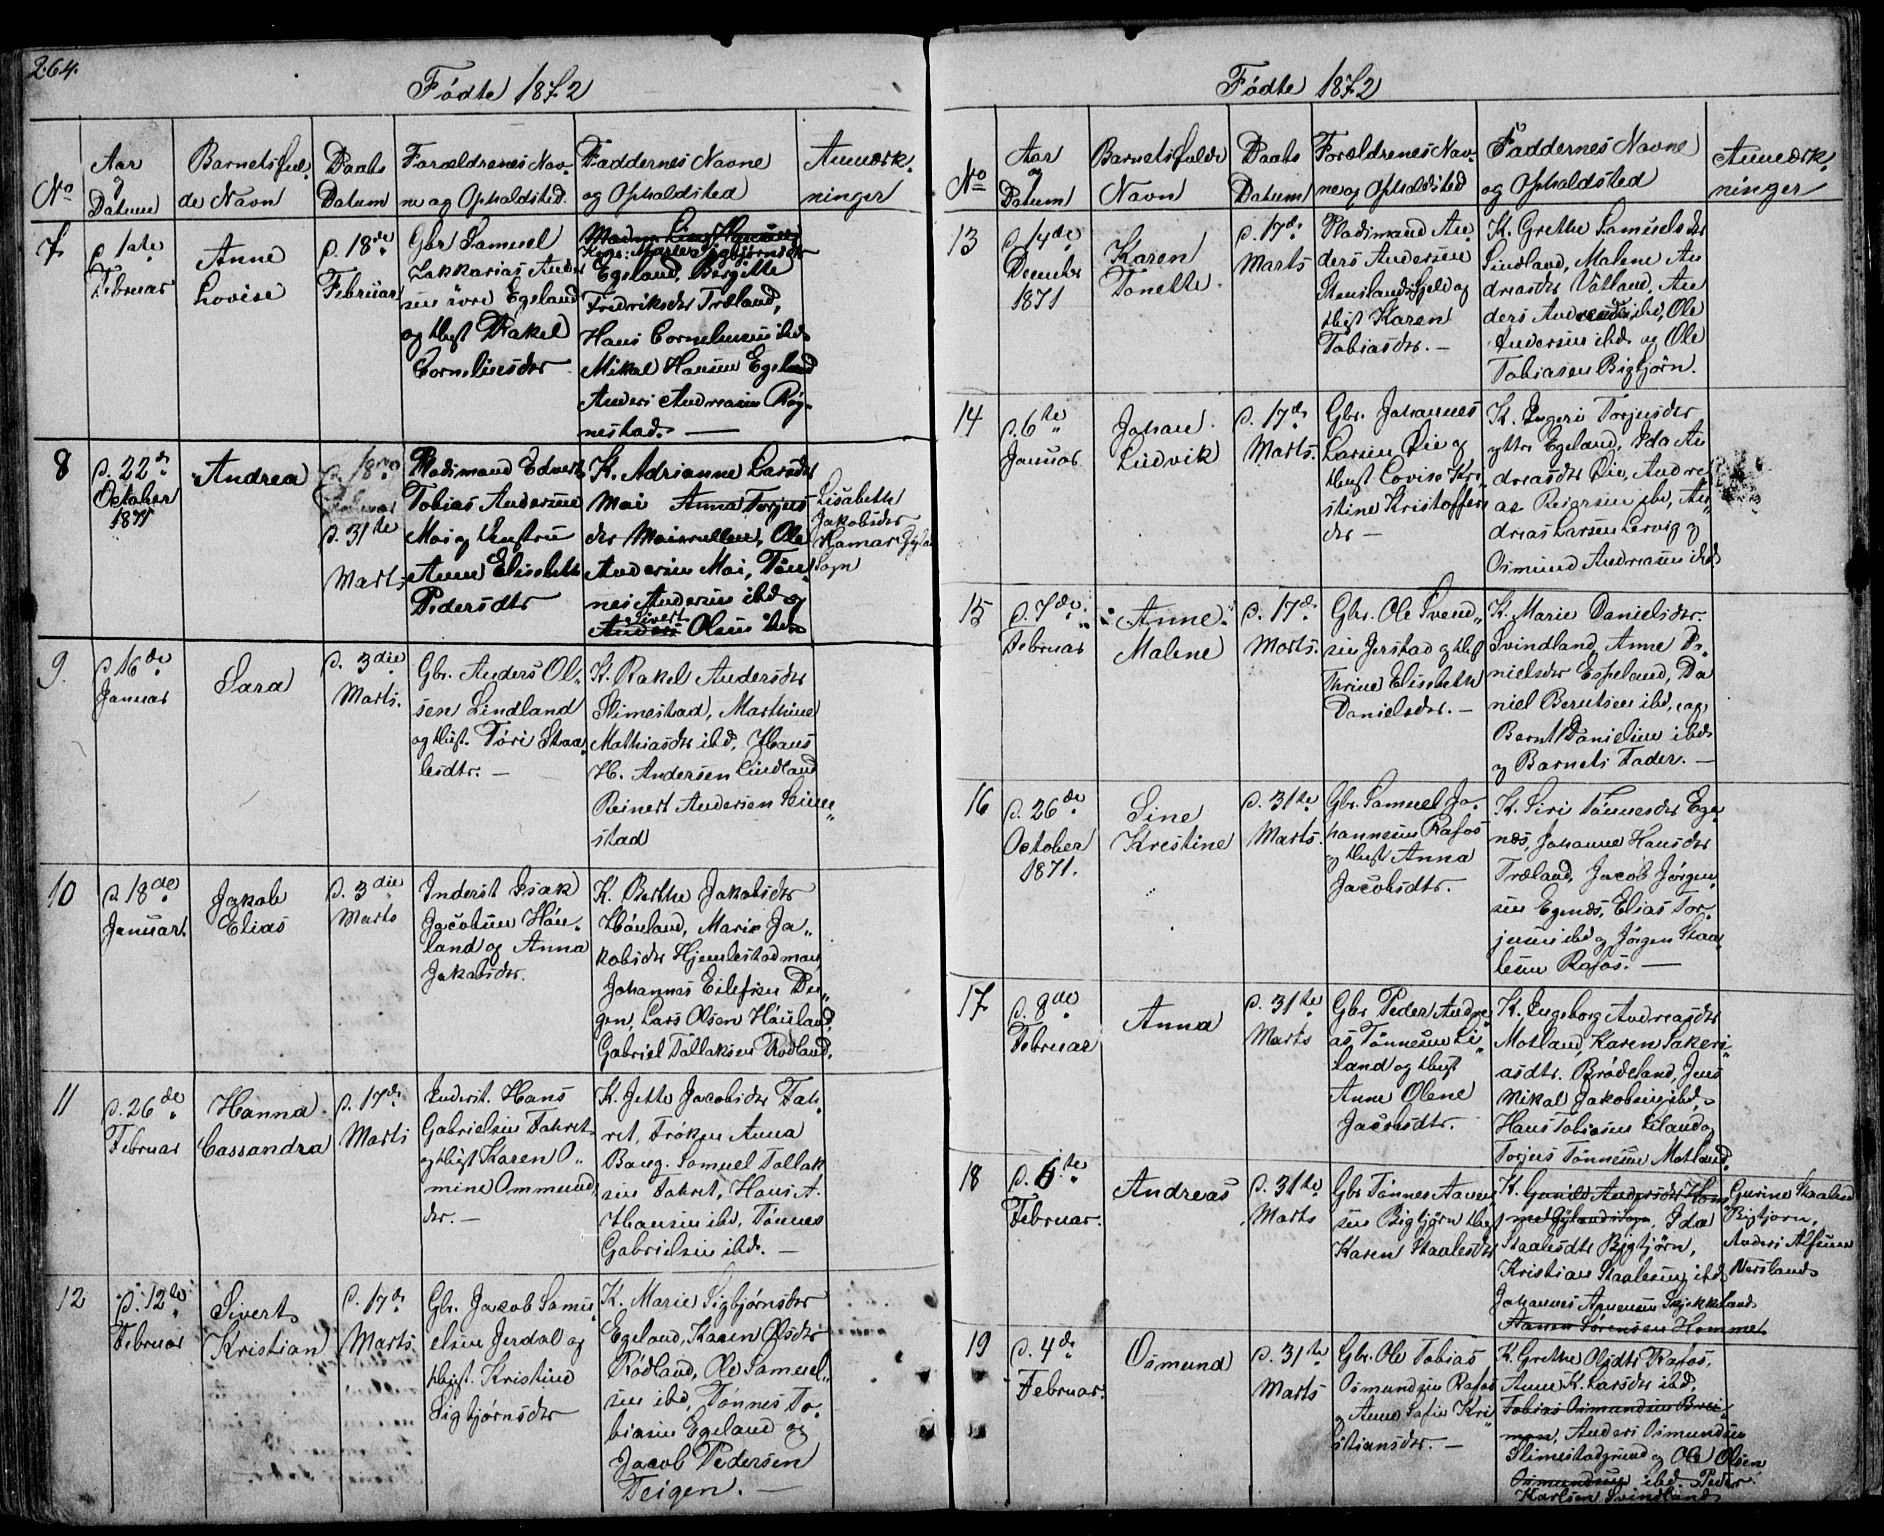 264.
Fødte 1872
No
Aar
&
Datum
Barnets ful-
de Navn
Daabs
Datum
Forældrenes Nav-
ne og Opholdsted.
Faddernes Navne
og Opholdsted
Anmærk-
ninger
7
d. 1ste
Februar
Anne
Lovise
d. 18de
Februar
Gbr Samuel
Zakkarias Ander
sen øvre Egeland
og Hust Rakel
Cornelius dtr
Egeland, Birgitte
Fredriksdtr Træland,
Hans Corneliussen ibd
Mikal Hansen Egeland
Anders Andreasen Røy-
nestad. —
8
d. 22de
October
1871
Andrea
d. 18de
Februar
d. 31te
Marts
Pladsmand Edvert
Tobias Andersen
Moi og Hustru
Anne Elisabeth
Pedersdtr
K. Adrianne Larsdtr
Moi Anna Torjus
dtr Moisvullen, Ole
Andersen Moi, Tøn-
nes Andersen ibd og
Sivert
Anders Olsen ibd
Lisabeth
Jakobsdtr
Hamar
Sogn
9.
d. 16de
Januar
Sara
d. 3die
Marts.
Gbr. Anders Ol-
sen Lindland
og Hust. Tóri Staa-
lesdtr. —
K. Rakel Andersdtr
Slimestad, Marthine
Mathiasdtr ibd, Hans
H. Andersen Lindland
Reinert Andersen Slime-
stad
10
d. 18de
Januar.
Jakob
Elias
d. 3die
Marts
Inderst Isak
Jacobsen Hóu-
land og Anna
Jakobsdtr.
K. Berthe Jakobsdtr
Hóuland, Marie Ja-
kobsdtr Hjemlestadmoen
Johannes Eilefsen
Lars Olsen Hóuland,
Gabriel Tallaksen Rødland.
11
d. 26de
Februar
Hanna
Cassandra
d. 17de
Marts
Inderst. Hans
Gabrielsen Fahret
og Hust Karen O-
mine Ommund
dtr. —
K. Jette Jacobsdtr Fah-
ret, Frøken Anna
Bang. Samuel Tallak
sen Fahret, Hans A.
Hansen ibd, Tønnes
Gabrielsen ibd. —
12
d. 12te
Februar
Sivert
Kristian
d. 17de
Marts
Gbr. Jakob Samu-
elsen Jerdal og
Hust. Kristine
Sigbjørnsdtr
K. Marie Sigbjørnsdtr
Egeland, Karen Olsdtr
Rødland, Ole Samuel-
sen ibd, Tønnes To-
biasen Egeland og
Jacob Pedersen
Teigen. —
Fødte 1872
No
Aar
og
Datum
Barnets fulde
Navn
Daabs
Datum
Forældrenes Nav-
ne og Opholdsted
Faddernes Navne
og Opholdsted
Anmærk-
ninger
13
d. 14de
December
1871
Karen
Tonette.
d. 17de
Marts
Pladsmand An-
ders Andersen
Stenslandsfjeld og
Hust Karen
Tobiasdtr. —
K. Grethe Samuelsdtr
Sindland, Malene An
dreasdtr Vatland, An
ders Andersen ibd, Ole
Andersen ibd og Ole
Tobiasen Bigtjørn.
14
d. 6te
Januar
Johan
Ludvik
d. 17de
Marts.
Gbr. Johannes
Larsen Lie og
Hust Lovise Kri
stine Kristoffers
dtr —
K. Ingeri Torjusdtr
yttre Egeland, Ida An
dreasdtr Lie, Andre
as Reiersen ibd, An-
dreas Larsen Lervig og
Osmund Andreasen ibd
15
d. 7de
Februar
Anne
Malene
d. 17de
Marts.
Gbr. Ole Svend-
sen Jerstad og Hust
Thrine Elisabeth
Danielsdtr. —
K. Marie Danielsdtr.
Svindland, Anne Da
nielsdtr Espeland, Da
niel Berntsen ibd, og
Bernt Danielsen ibd
og Barnets Fader. —
16
d. 26de
October
1871.
Sine
Kristine
d. 31te
Marts.
Gbr. Samuel Jo-
hannesen Rafos
og Hust Anna
Jacobsdtr.
K. Siri Tønnesdtr Ege-
næs, Johanne Hansdtr
Træland, Jacob Jørgen-
sen Egenæs, Elias Tor-
jusen ibd og Jørgen Staa-
lesen Rafos. —
17
d. 8de
Februar
Anna
d. 31te
Marts
Gbr Peder Andre-
as Tønnesen Li-
land og Hust
Anne Olene
Jacobsdtr.
K. Ingeborg Andreasdtr
Motland, Karen Sakeri-
asdtr. Brødeland, Jens
Mikal Jakobsen ibd,
Hans Tobiasen Liland og
Torjus Tønnesen Motland.
18
d. 6te
Februar.
Andreas
d. 31te
Marts
Gbr Tønnes Aanen
sen Bigtjørn Hust
Karen Staalesdtr
K. Gunild Andersdtr Hom
met Gylands Sogn, Ida
Staalesdtr Bigtjørn,
Kristian Staalesen ibd
Johannes Aanensen Skjekkeland
Aanen Sørensen Hommet
Gurine Staalesd
Bigtjørn,
Anders Alfsen
Nersland
19
d. 4de
Februar.
Osmund
d. 31te
Marts
Gbr. Ole Tobias
Osmundsen Rafos
og Anne Sofie Kri-
stiansdtr. —
K. Grethe Olsdtr Rafos,
Anne K. Larsdtr ibd,
Tobias Osmundsen Brei-
moen, Anders Osmundsen
Slimestadgrund og Ole Olsen
Osmundsen ibd Peder
Karlsen Svindland